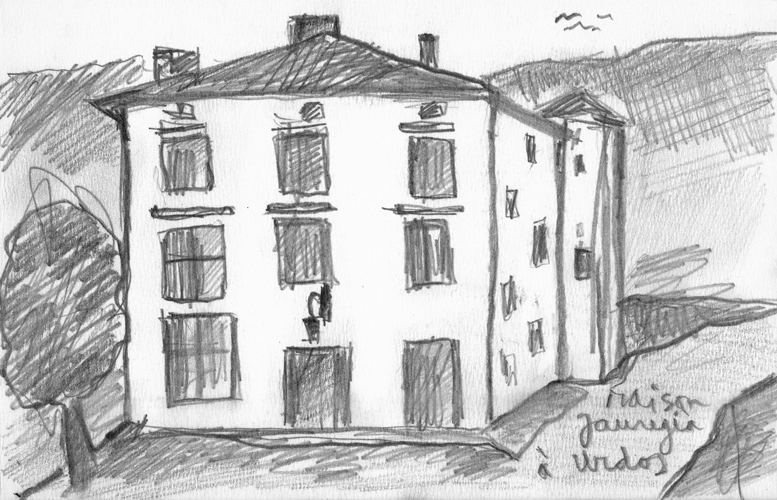 Maison
Jauregia
à Urdos